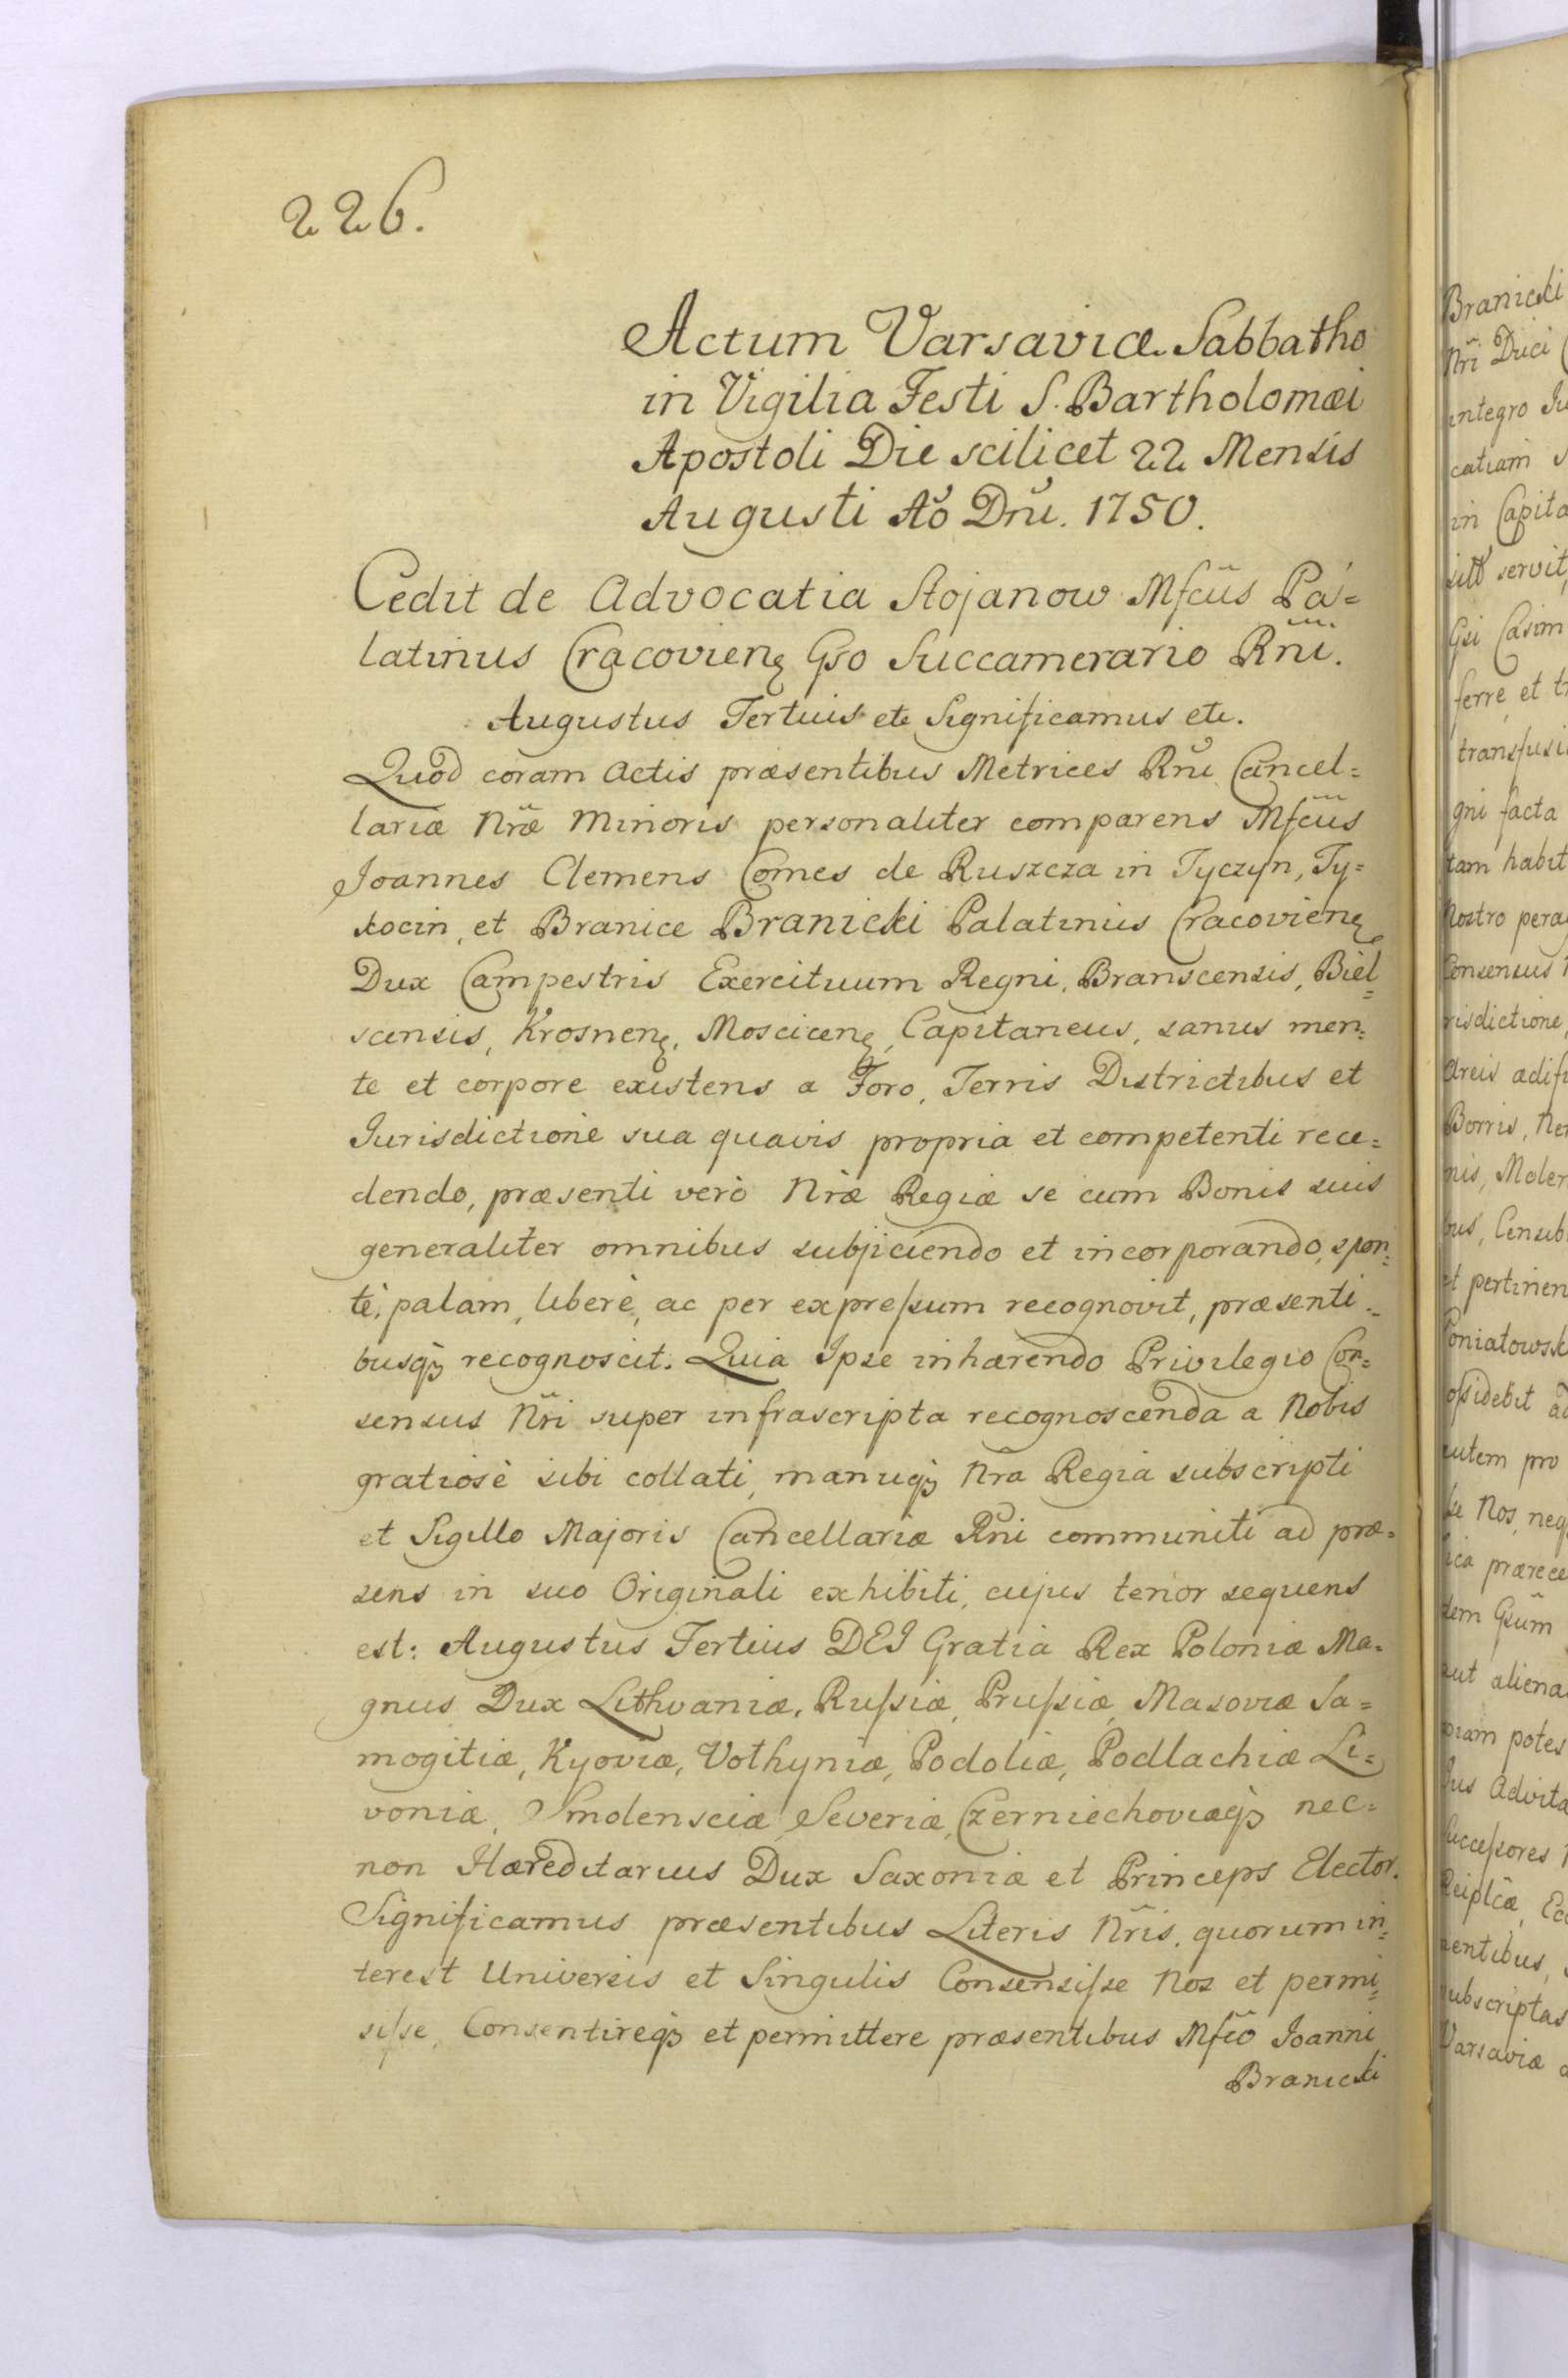 226.
Actum Varsaviæ Sabbatho
in Vigilia Festi S. Bartholomæi
Apostoli Die scilicet 22 Mensis
Augusti Ao Dni. 1750.
Cedit de Advocatia Stojanow Mfcus Pa=
latinus Cracovien Gso Succamerario Rni.
Augustus Tertius etc Significamus etc.
Quod coram Actis præsentibus Metrices Rni Cancel=
lariæ Nræ Minoris personaliter comparens Mfcus
Joannes Clemens Comes de Ruszcza in Tyczyn, Ty=
kocin, et Branice Branicki Palatinus Cracovien
Dux Campestris Exercituum Regni, Branscensis, Biel=
scensis, Krosnen, Moscicen, Capitaneus, sanus men=
te et corpore existens a Foro, Terris Districtibus et
Jurisdictione sua quavis propria et competenti rece=
dendo, præsenti verò Nræ Regiæ se cum Bonis suis
generaliter omnibus subjiciendo et incorporando, spon=
tè, palam, liberè, ac per expreſsum recognovit, præsenti=
busq; recognoscit. Quia Ipse inhærendo Privilegio Con=
sensus Nri super infrascripta recognoscenda a Nobis
gratiosè sibi collati, manuq; Nra Regia subscripti
et Sigillo Majoris Cancellariæ Rni communiti ad præ=
sens in suo Originali exhibiti, cujus tenor sequens
est: Augustus Tertius DEI Gratia Rex Poloniæ Ma=
gnus Dux Lithvaniæ, Ruſsiæ, Pruſsiæ, Masoviæ Sa=
mogitiæ, Kyoviæ, Volhyniæ, Podoliæ, Podlachiæ Li=
voniæ, Smolensciæ, Severiæ, Czerniechoviæq; nec=
non Hæreditarius Dux Saxoniæ et Princeps Elector.
Significamus præsentibus Literis Nris, quorum in=
terest Universis et Singulis Consensiſse Nos et permi=
siſse, Consentireq; et permittere præsentibus Mfco Joanni
Branicki
Branicki
Nri Duci
integro
catiam
in Capita
servit
Gsi Casim
ferre et
transfusi
gni facta
tam habit
Nostro pera
Consensus
risdictione
Areis ædifi
Borris, Ne
nis, Molen
bus, Censib
et pertinen
Poniatowsk
oſsidebit
autem pro
se Nos, neq
ica prærece
dem Gsum
aut aliena
piam potes
Jus Advita
Succeſsores
Reiplcæ, Ec
nentibus,
subscriptas
Varsaviæ